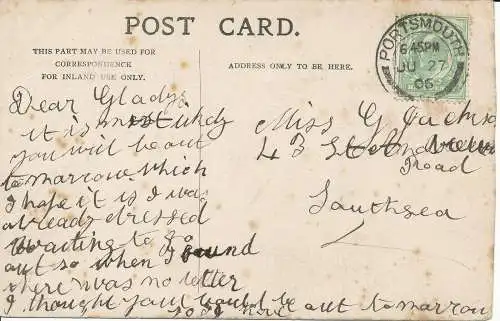 POST CARD.
THIS PART MAY BE USED FOR
CORRESPONDENCE
FOR INLAND USE ONLY.
ADDRESS ONLY TO BE HERE.
PORTSMOUTH
6 45PM
JU 27
06
Dear Gladys
it is
you will be out
tomorrow which
I hope it is I was
already dressed
waiting to go
out so when I found
there was no letter
I thought you would be out tomorrow
Miss G
43
Road
Southsea